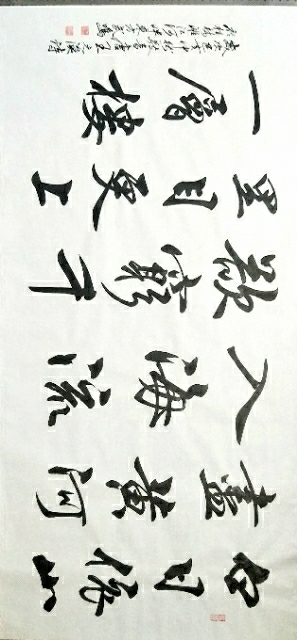 白日依山
盡黃河
入海流
欲窮千
里目更上
一層樓
王之渙詩